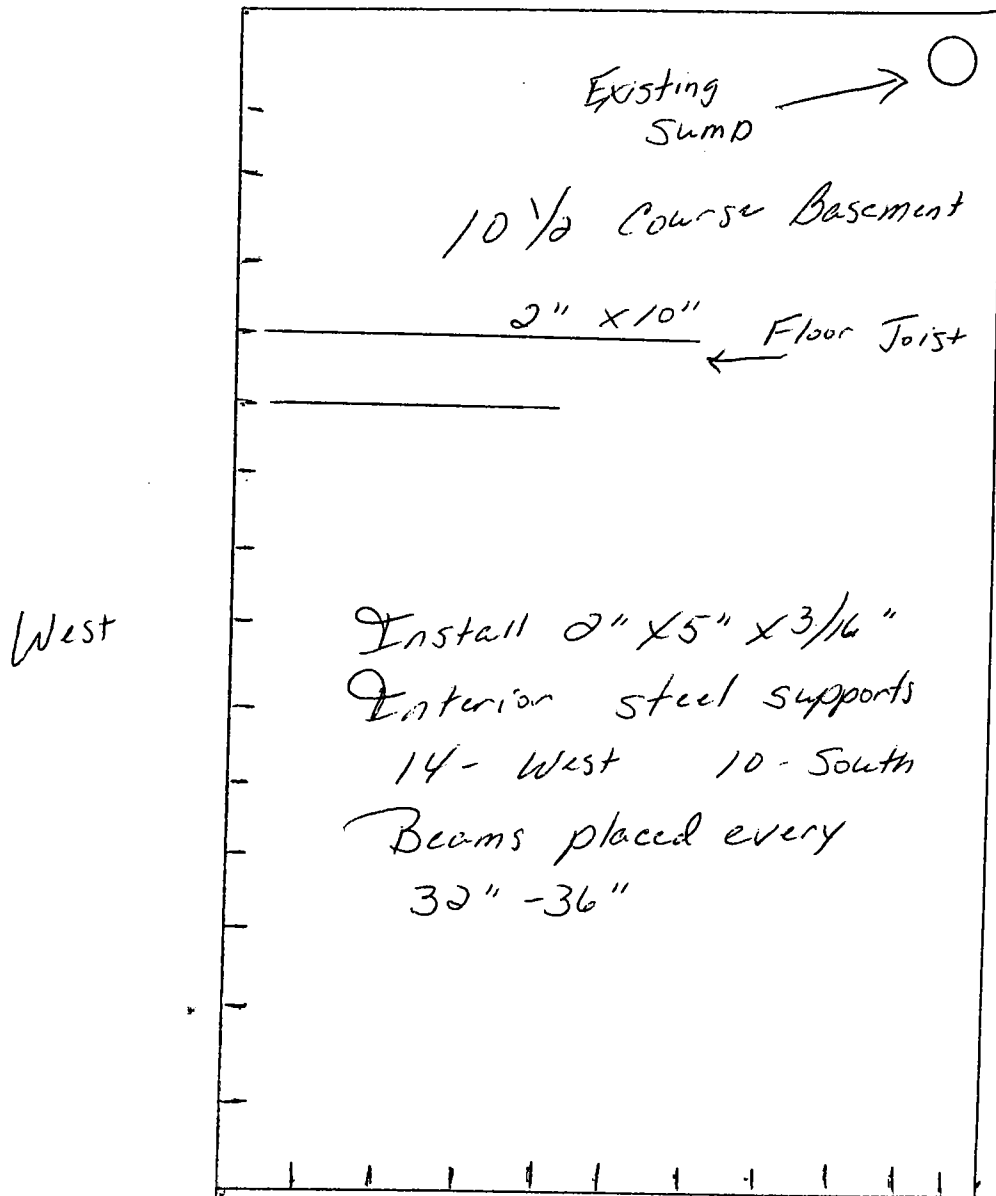 Existing
Sump
10 1/2 Course Basement
2" x 10"
Floor Joist
West
Install 2" x 5" x 3/16"
Interior steel supports
14 - West 10 - South
Beams placed every
32" - 36"